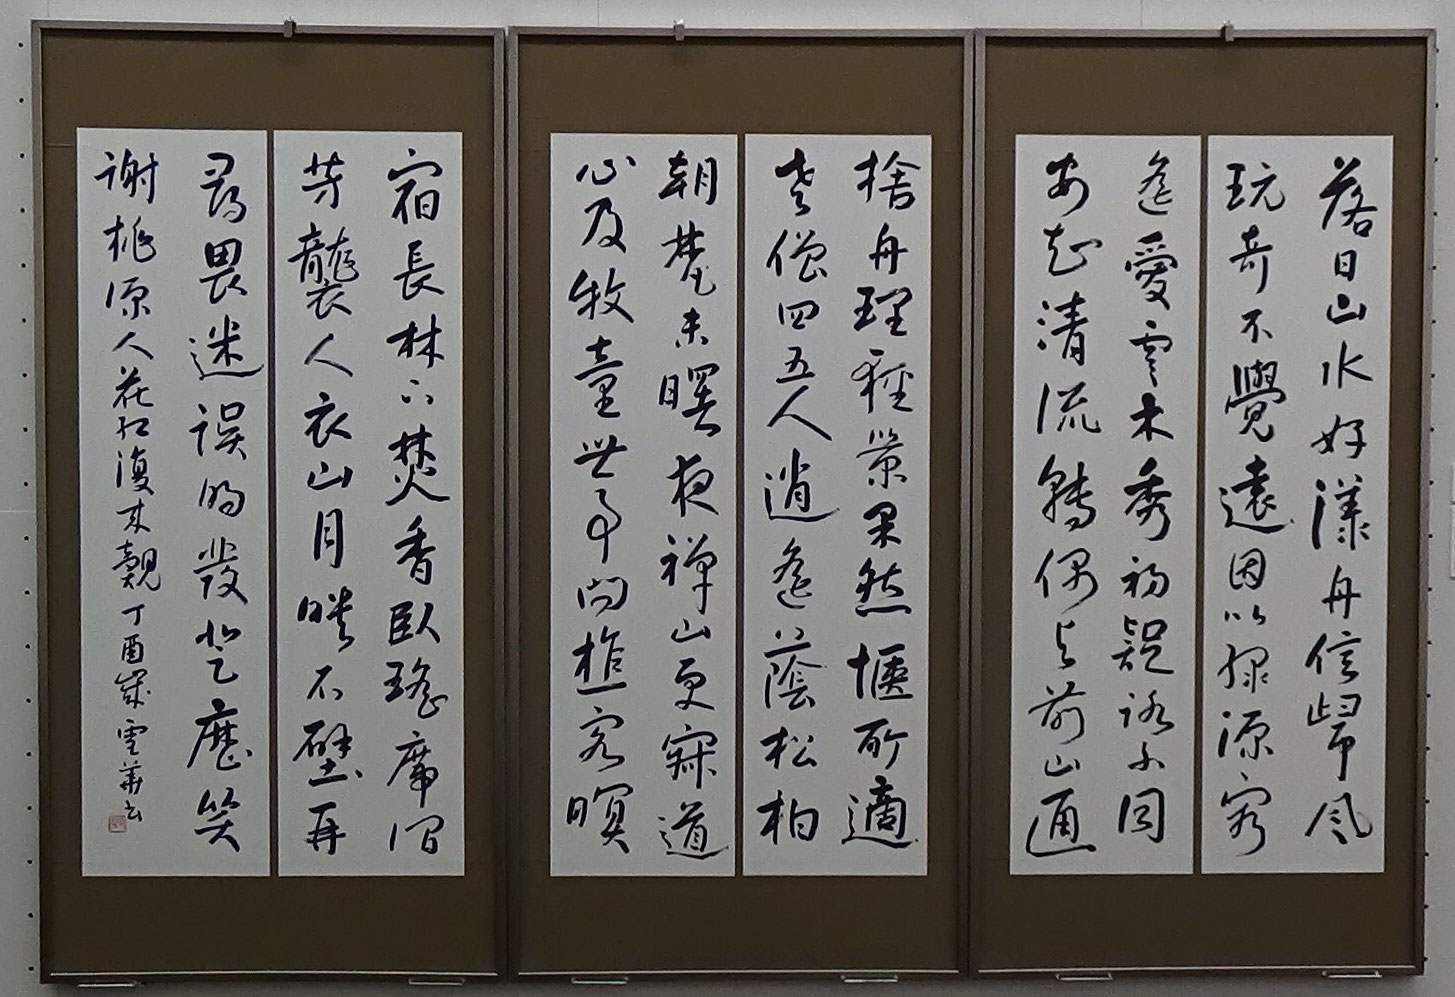 落日山水好漾舟信歸風
玩奇不覺遠因以緣源窮
遙愛雲木秀初疑路不同
安知清流轉偶与前山通
捨舟理輕策果然愜所適
老僧四五人逍遙蔭松柏
朝梵未曙夜禪山更寂道
心及牧童世事問樵客暝
宿長林下焚香臥瑤席澗
芳襲人衣山月映石壁再
尋畏迷誤明發登歷笑
謝桃源人花紅復来覿丁酉歲雲華書